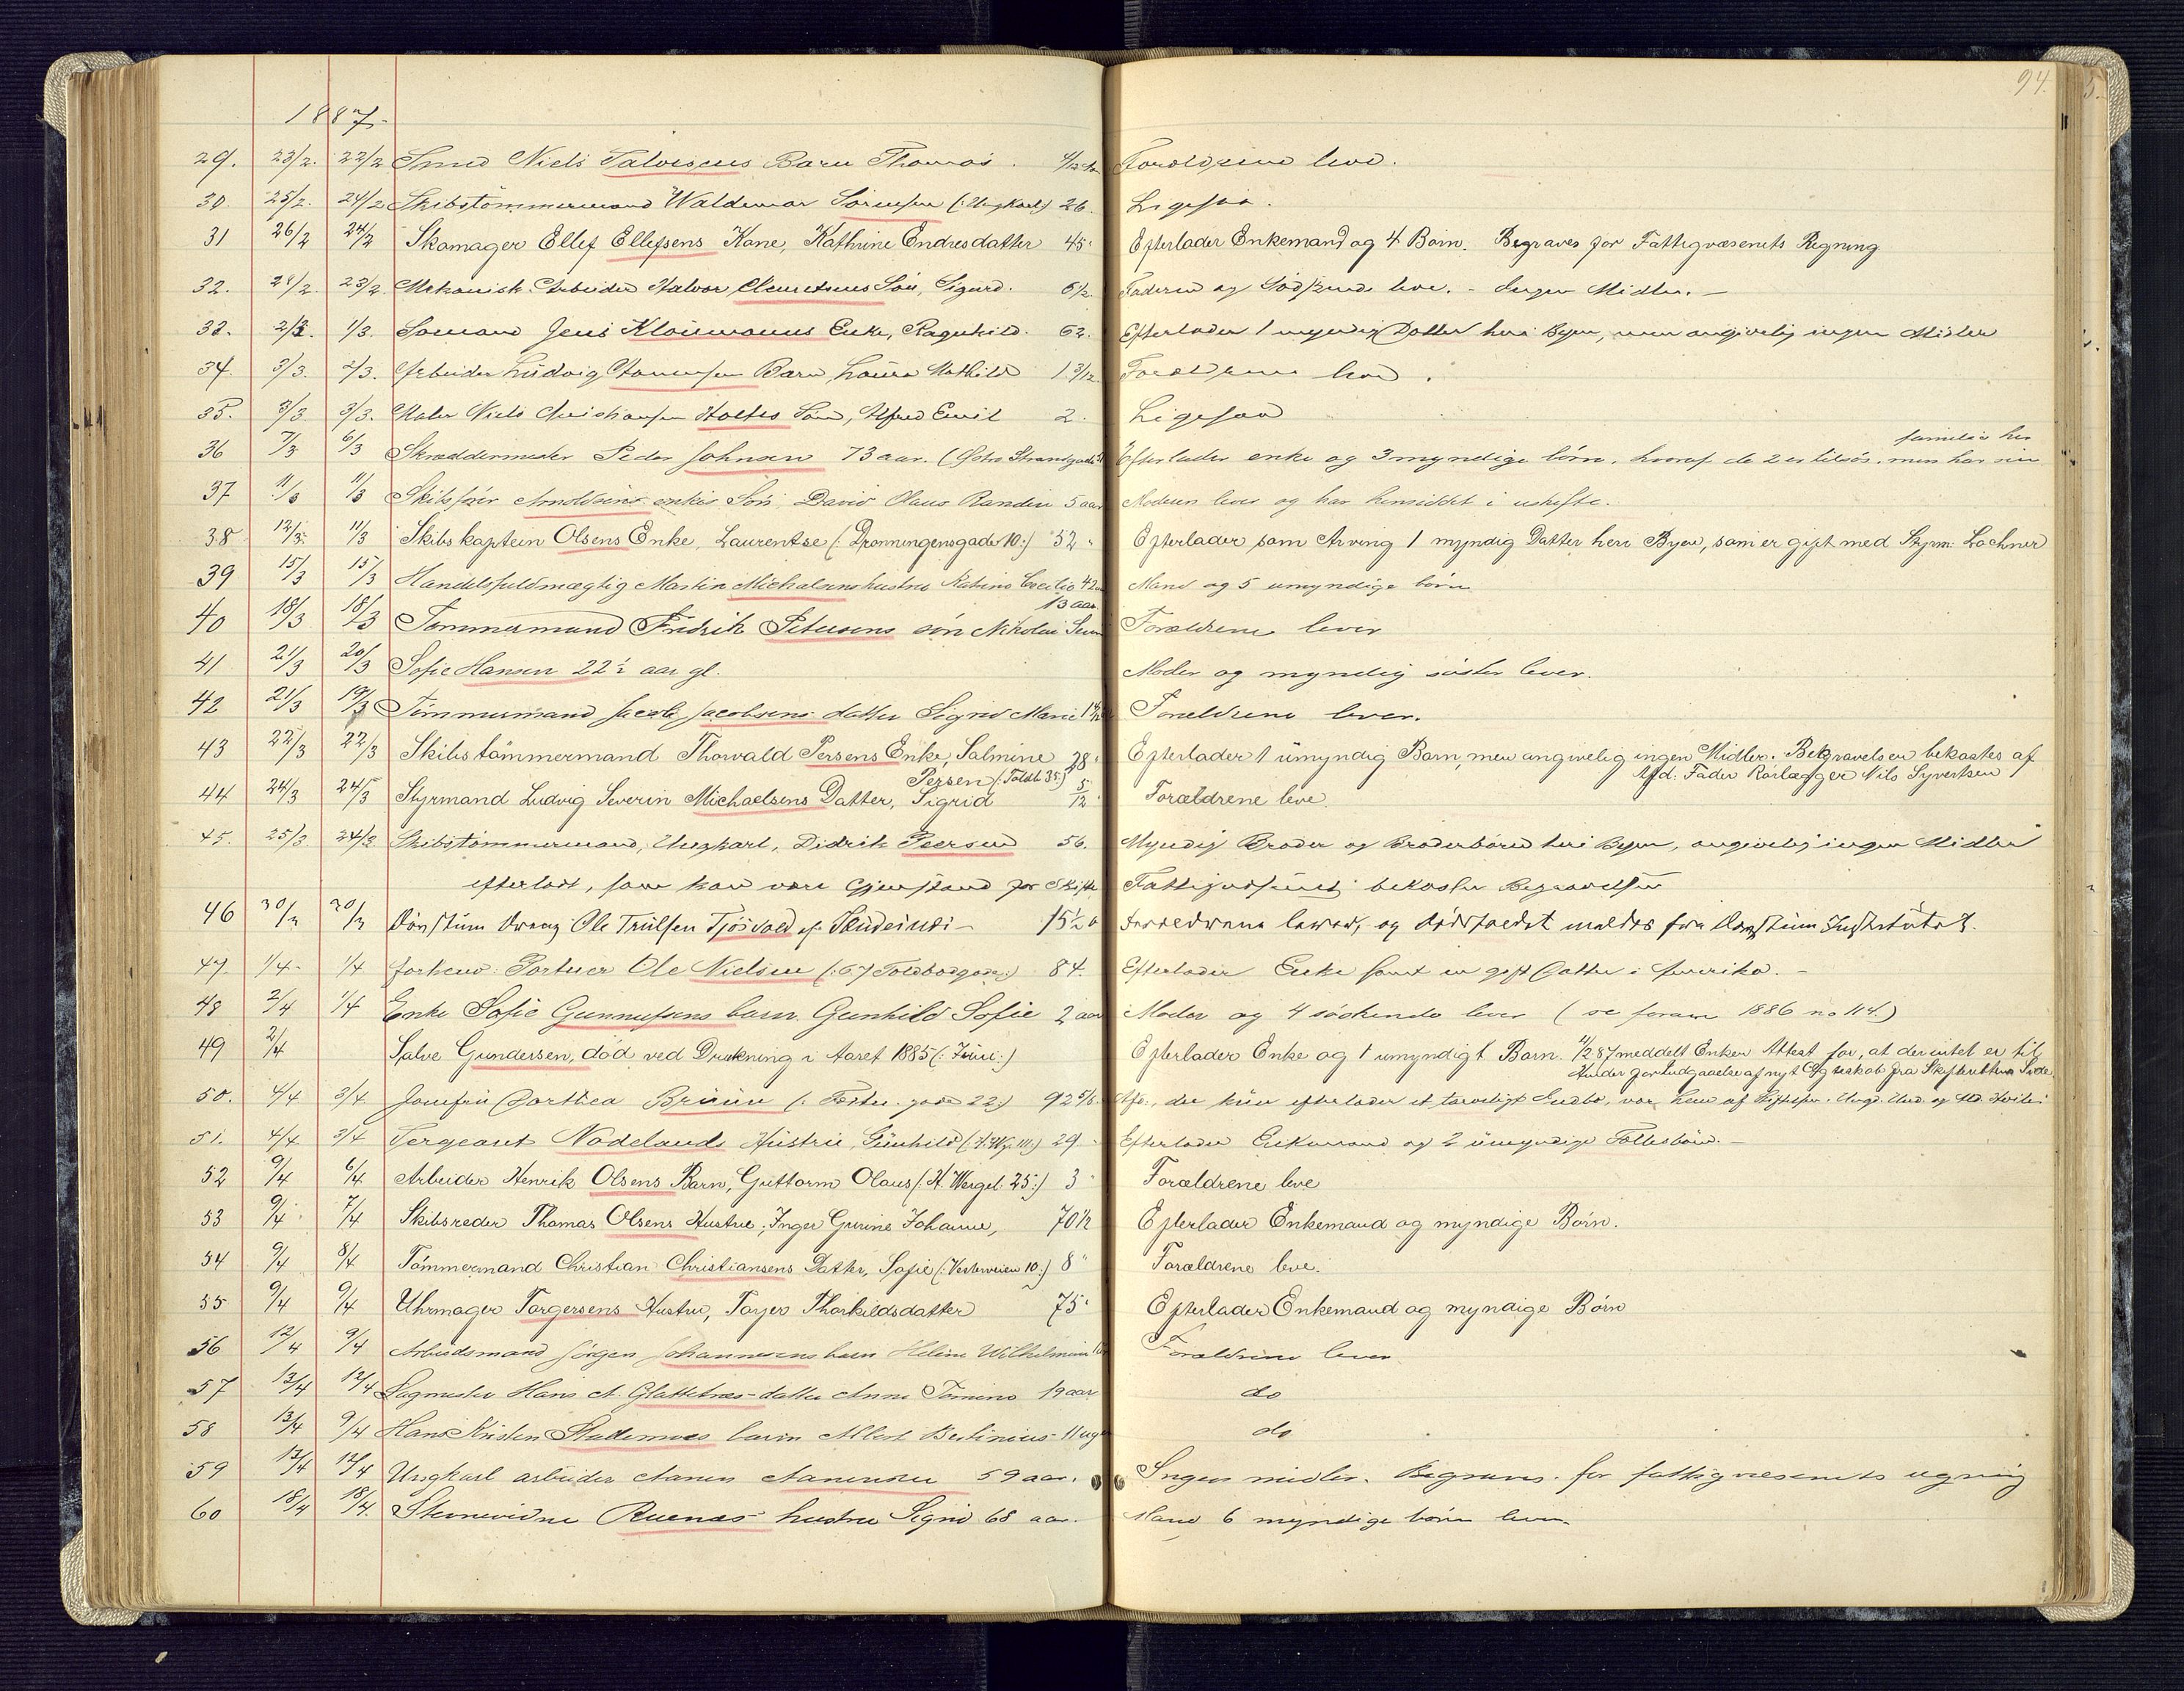 94.
1887
29. 23/2. 22/2 Smed Niels Salvesens Barn Thomas. Forældrene leve.
30. 25/2. 24/2 Skibstömmermand Waldemar Sörensen (: Ungkarl) 26. Ligesaa.
31 26/2 24/2 Skomager Ellef Ellefsens Kone, Kathrine Endresdatter 45 Efterlader Enkemand og 4 Börn. Begraves for Fattigvæsenets Regning
32. 28/2. 23/2. Mekanisk Arbeider Halvor Clemetsens Sön, Sigurd. 6½ Faderen og Södskende leve. - Ingen Midler. -
33. 2/3. 1/3. Sömand Jens Enke, Ragnhild. 62. Efterlader 1 myndig Datter her i Byen, men angivelig ingen Midler
34. 3/3. 2/3. Arbeider Ludvig Barn Laura Mathilde 1 3/12 Forældrene leve.
35. 3/3. 3/3. Maler Niels Christiansen Holtes Sön, Alfred Emil 2. Ligesaa
36 7/3 6/3 Skræddermester Peder Johnsen 73 aar. Efterlader enke og 3 myndige börn, hvoraf de 2 er tilsös, men har sin
familie her
37 11/3 11/3 Skibsförer Arnoldsens enkes Sön, David Olaus Randin 5 aar Moderen lever og har hensiddet i uskifte.
38 12/3. 11/3 Skibskaptein Olsens Enke, Laurentse (: Dronningensgade 10:) 52 Efterlader som Arving 1 myndig Datter her i Byen, som er gift med Styrm. Lochner
39 15/3 15/3 Handelsfuldmægtig Martin Michalsens hustru Katrine Cecilie 42 Mand og 5 umyndige börn
13 aar
40 18/3 18/3 Tömmermand Fredrik Petersens sön Nikolai Forældrene lever
41 21/3 20/3 Sofie Hansen 22½ aar gl. Moder og myndig söster lever.
42 21/3 19/3 Tömmermand Jacob Jacobsens datter Sigrid Marie Forældrene lever.
43 22/3 22/3 Skibstömmermand Thorvald Persens Enke, Salmine 28 Efterlader 1 umyndig Barn, men angivelig ingen Midler. Begravelsen bekostes af
Persen (: Toldb. 35:) Afd: Fader Rörlægger Nils Syvertsen
44 24/3 24/3 Styrmand Ludvig Severin Michaelsens Datter, Sigrid 5/12 Forældrene leve.
45. 25/3 24/3 Skibstömmermand, Ungkarl, Didrik Peersen 56. Myndig Broder og Broderbörn her i Byen, angivelig ingen Midler
efterladt, som kan være Gjenstand for Skifte Fattigvæsenet bekoster Begravelsen
46 30/3 30/3 Dövstum Dreng Ole Trulsen Tjösvold af Skudeings - 15½ a Forældrene lever, og dödsfaldet meldes fra Dövstum Institutet.
47. 1/4 1/4 forhenv: Portner Ole Nielsen (: 67 Toldbodgaden:) 84. Efterlader Enke samt en gift Datter i Amerika. -
48 2/4 1/4 Enke Sofie Gunnufsens barn Gunhild Sofie 2 aar Moder og 4 södskende lever (se foran 1886 no 114.)
49 2/4 Salve Gundersen, död ved Drukning i Aaret 1885 (: Juni:) Efterlader Enke og 1 umyndigt Barn. 87 meddelt Enken Attest for, at der intet er til
Hinder for Indgaaelse af nyt Ægteskab fra Skifterettens Side
50. 4/4 3/4 Jomfru Dorthea Bruun 92 5/6. Afd., der kun efterlader et tarveligt Indbo, var
51. 4/4 3/4 Sergeant Nodelands Hustru, Gunhild 29. Efterlader Enkemand og 2 umyndige Fællesbörn. -
52 9/4 6/4 Arbeider Henrik Olsens Barn, Guttorm Olaus (: H. Wergel. 25:) 3 Forældrene leve
53 9/4 7/4 Skibsreder Thomas Olsens Hustru, Inger Gurine Johanne, 70½ Efterlader Enkemand og myndige Börn.
54 9/4 8/4 Tömmermand Christian Christiansens Datter, Sofie (: Vesterveien 10:) 8 Forældrene leve.
55 9/4 9/4 Uhrmager Torgersens Hustru, Torjer Thorkildsdatter 75 Efterlader Enkemand og myndige Börn
56 12/4 9/4 Arbeidsmand Jörgen Johannesens barn Helene Wilhelmine Forældrene lever
57 13/4 12/4 Sagmester Hans A. Glattetræs datter Anne Tomine 19 aar do
58 13/4 9/4 Hans Kristen barn Albert Bertinius 11 uger do
59 13/4 12/4 Ungkarl arbeider Aanen Aanensen 59 aar. Ingen midler. Begraves for fattigvæsenets regning
60 18/4 18/4. Stevnevidne Ruenæs hustru Sigrid 68 aar. Mand 6 myndige börn lever.